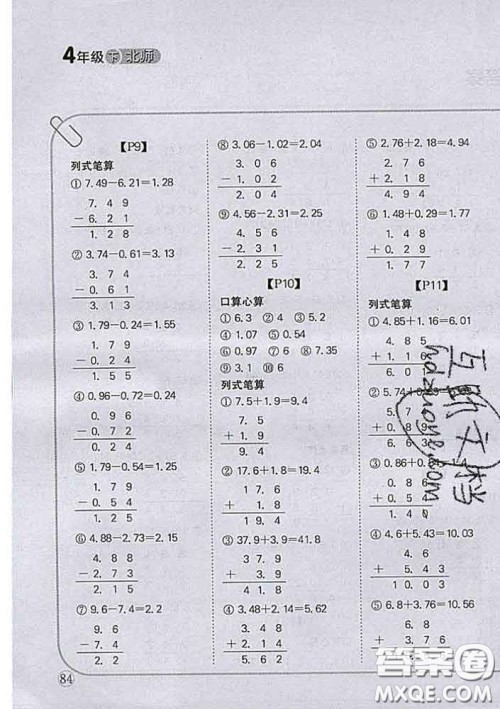 4年级 下 北师
【P9】
列式笔算
① 7.49－6.21=1.28
7. 4 9
－ 6. 2 1
1. 2 8
② 3.74－0.61=3.13
3. 7 4
－ 0. 6 1
3. 1 3
③ 1.79－0.24=1.55
1. 7 9
－ 0. 2 4
1. 5 5
④ 0.96－0.72=0.24
0. 9 6
－ 0. 7 2
0. 2 4
⑤ 1.79－0.54=1.25
1. 7 9
－ 0. 5 4
1. 2 5
⑥ 4.88－2.73=2.15
4. 8 8
－ 2. 7 3
2. 1 5
⑦ 9.6－7.4=2.2
9. 6
－ 7. 4
2. 2
⑧ 3.06－1.02=2.04
3. 0 6
－ 1. 0 2
2. 0 4
⑨ 4.56－2.31=2.25
4. 5 6
－ 2. 3 1
2. 2 5
【P10】
口算心算
① 6.3 ② 4 ③ 5.2
④ 1.07 ⑤ 0.5
⑥ 0.97 ⑦ 9 ⑧ 6.2
⑨ 3.1 ⑩ 6
列式笔算
① 7.5＋1.9=9.4
7. 5
＋ 1. 9
9. 4
② 17.6＋1.8=19.4
1 7. 6
＋ 1. 8
1 9. 4
③ 37.9＋3.9=41.8
3 7. 9
＋ 3. 9
4 1. 8
④ 3.48＋2.14=5.62
3. 4 8
＋ 2. 1 4
5. 6 2
⑤ 2.76＋2.18=4.94
2. 7 6
＋ 2. 1 8
4. 9 4
⑥ 1.48＋0.29=1.77
1. 4 8
＋ 0. 2 9
1. 7 7
【P11】
列式笔算
① 4.85＋1.16=6.01
4. 8 5
＋ 1. 1 6
6. 0 1
② 5.74
＋ 0. 8
6. 6 3
③ 0.86＋0.
0. 8 6
＋ 0. 5
1. 4
④ 4.6＋5.43=10.03
4. 6
＋ 5. 4 3
1 0. 0 3
⑤ 6.8＋3.76=10.56
6. 8
＋ 3. 7 6
84
互助文档
hdzuoye.com
答案圈
MXQE.COM